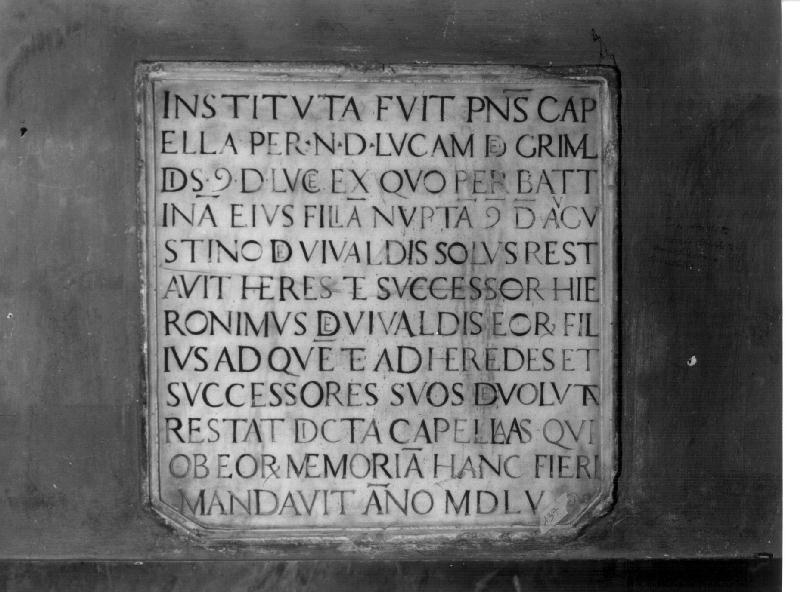 INSTITVTA FVIT PNS̄ CAP
ELLA PER·N·D·LVCAM DE GRIML
DDS·9·D·LVCE EX̄ QVO PER BATT
INĀ EIVS FILIĀ NVPTĀ 9 D̄ AGV
STINO DE VIVALDIS SOLVS REST
AVIT HERES ET SVCCESSOR HIE
RONIMVS DE VIVALDIS EOR FIL
IVS AD QVĒ ET AD HEREDES ET
SVCCESSORES SVOS DVOLVTA
RESTAT DICTA CAPELLA AS QVI
OB EOR MEMORIĀ HANC FIERI
MANDAVIT ĀNO MDLV